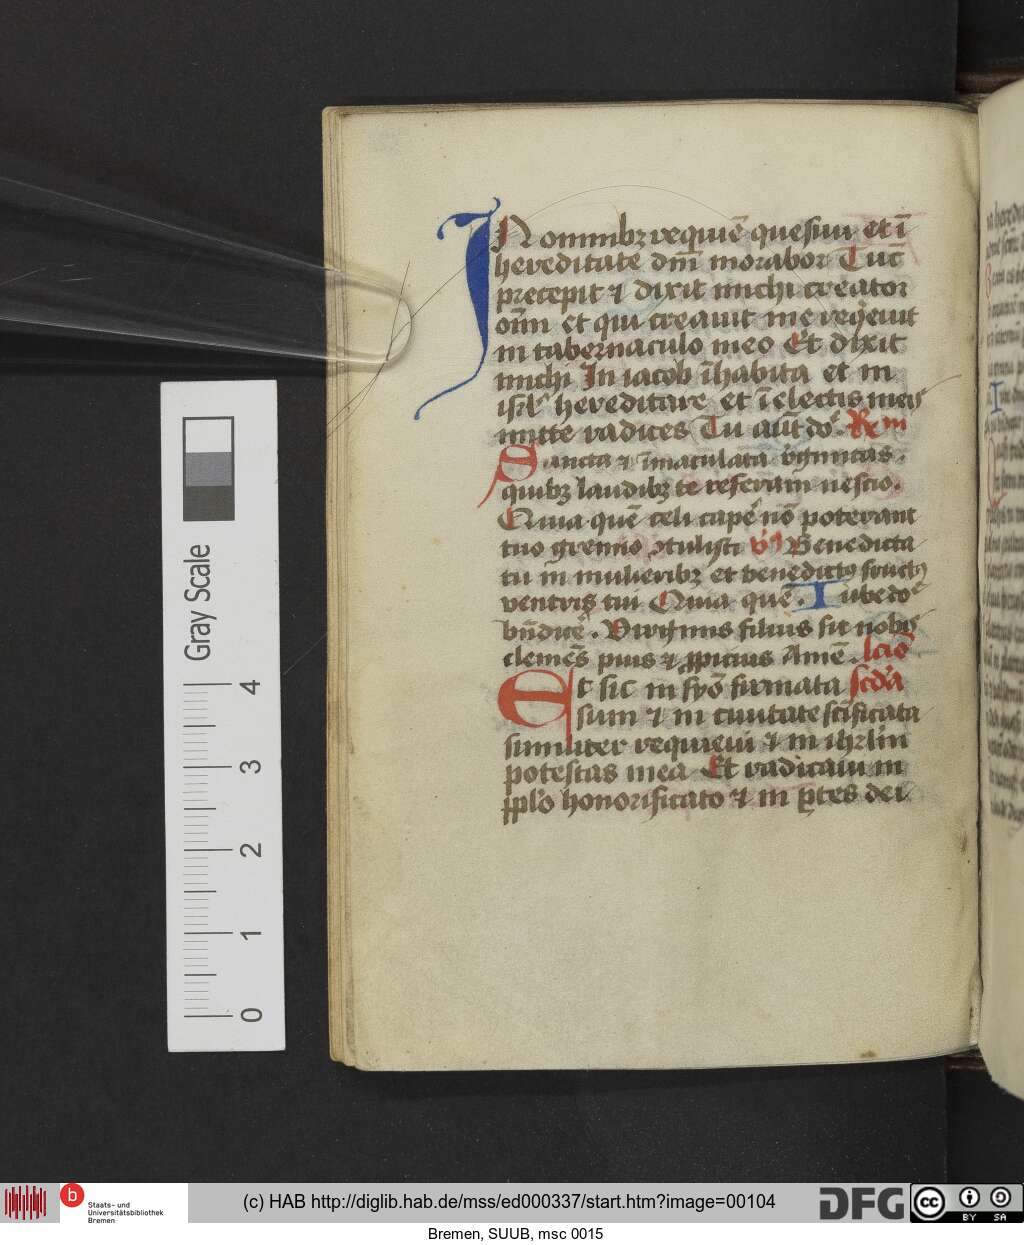 IN omnibꝫ requiē quesiui et ī
hereditate dn̄i morabor Tūc
precepit ⁊ dixit michi creator
oīm et qui creauit me reqͥeuit
in tabernaculo meo Et dixit
michi In iacob īhabita et in
isrl̓ hereditare et ī electis meis
mitte radices Tu aūt do᷑. Rem
Sancta ⁊ īmaculata vgͥinitas.
quibꝫ laudibꝫ te referam nescio.
Quia quē celi cape᷑ nō poterant
tuo gremio ꝯtulisti v̓s Benedicta
tu in mulieribꝫ et benedictꝰ fructꝰ
ventris tui Quia quē. Iube do᷑
bn̄dice᷑. Virginis filius sit nobis
clemēs pius ⁊ ꝓpicius Amē. lcīo
Et sic in syō firmata scd̓a
sum ⁊ in ciuitate scīficata
similiter requieui ⁊ in ihrlm̄
potestas mea Et radicaui in
ppl̓o honorificato ⁊ in ꝑtes dei
Gray Scale
4
3
2
1
0
b
Staats- und
Universitätsbibliothek
Bremen
(c) HAB http://diglib.hab.de/mss/ed000337/start.htm?image=00104
DFG
cc
BY SA
Bremen, SUUB, msc 0015